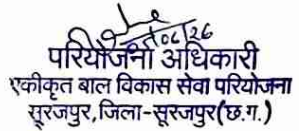 08/26
परियोजना अधिकारी
एकीकृत बाल विकास सेवा परियोजना
सूरजपुर,जिला-सूरजपुर(छ.ग.)